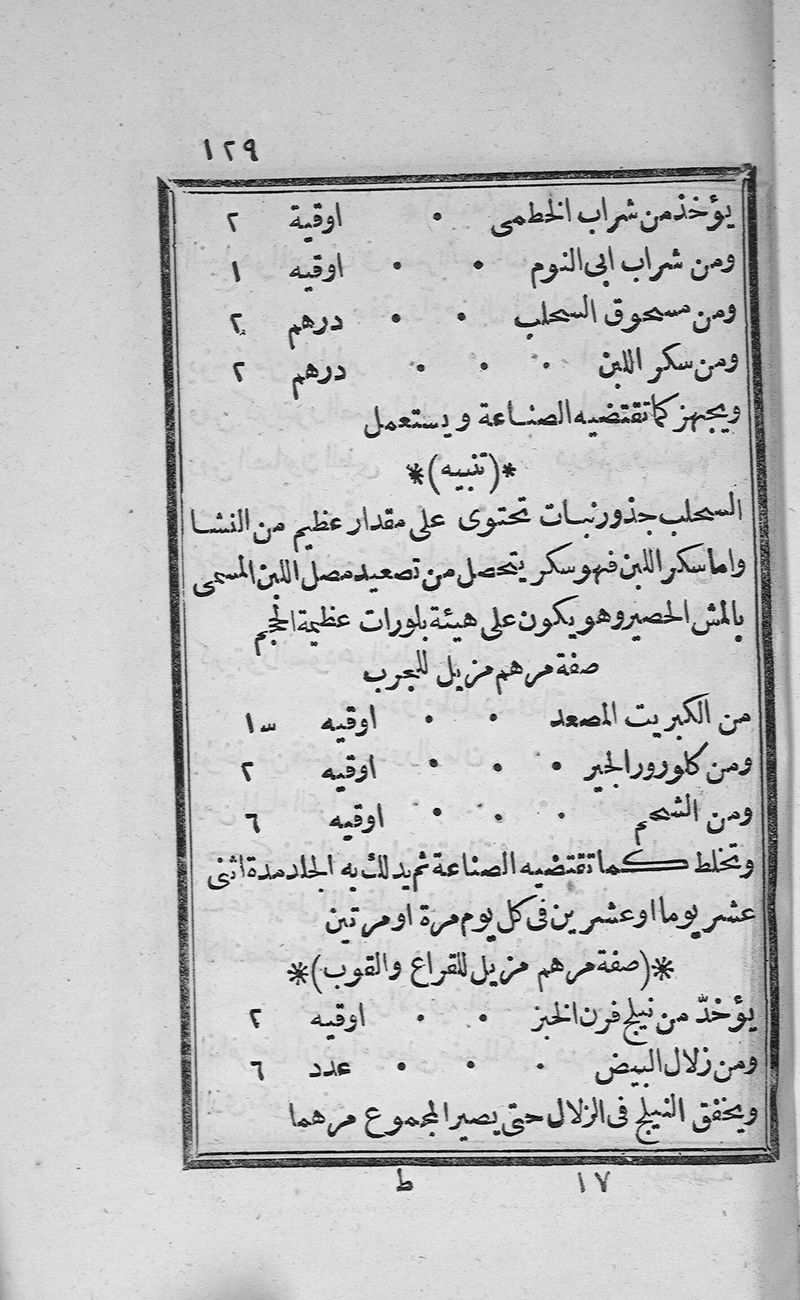 ١٢٩
يؤخذ من شراب الخطمى • اوقية ٢
ومن شراب ابى النوم • • اوقيه ١
ومن مسحوق السحلب • • درهم ٢
ومن سكر اللبن • • • درهم ٢
ويجهز كما تقتضيه الصناعة ويستعمل
*(تنبيه)*
السحلب جذور نبات تحتوى على مقدار عظيم من النشا
واما سكر اللبن فهو سكر يتحصل من تصعيد مصل اللبن المسمى
بالمش الحصير وهو يكون على هيئة بلورات عظيمة الحجم
صفة مرهم مزيل للجرب
من الكبريت المصعد • • اوقيه ١
ومن كلورور الجير • • • اوقيه ٢
ومن الشحم • • • اوقيه ٦
وتخلط كما تقتضيه الصناعة ثم يدلك به الجلد مدة اثنى
عشر يوما او عشرين فى كل يوم مرة او مرتين
*(صفة مرهم مزيل للقراع والقوب)*
يؤخذ من نيلج فرن الخبز • • اوقيه ٢
ومن زلال البيض • • • عدد ٦
ويخفق النيلج فى الزلال حتى يصير المجموع مرهما
١٧ ط